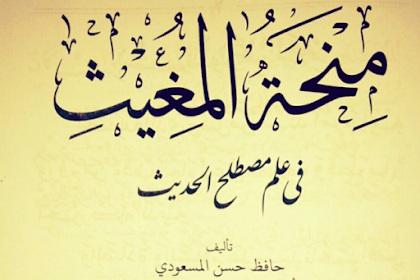 مِنْحَةُ المُغِيْثِ
في علم مصطلح الحديث
تأليف
حافظ حسن المسعودي